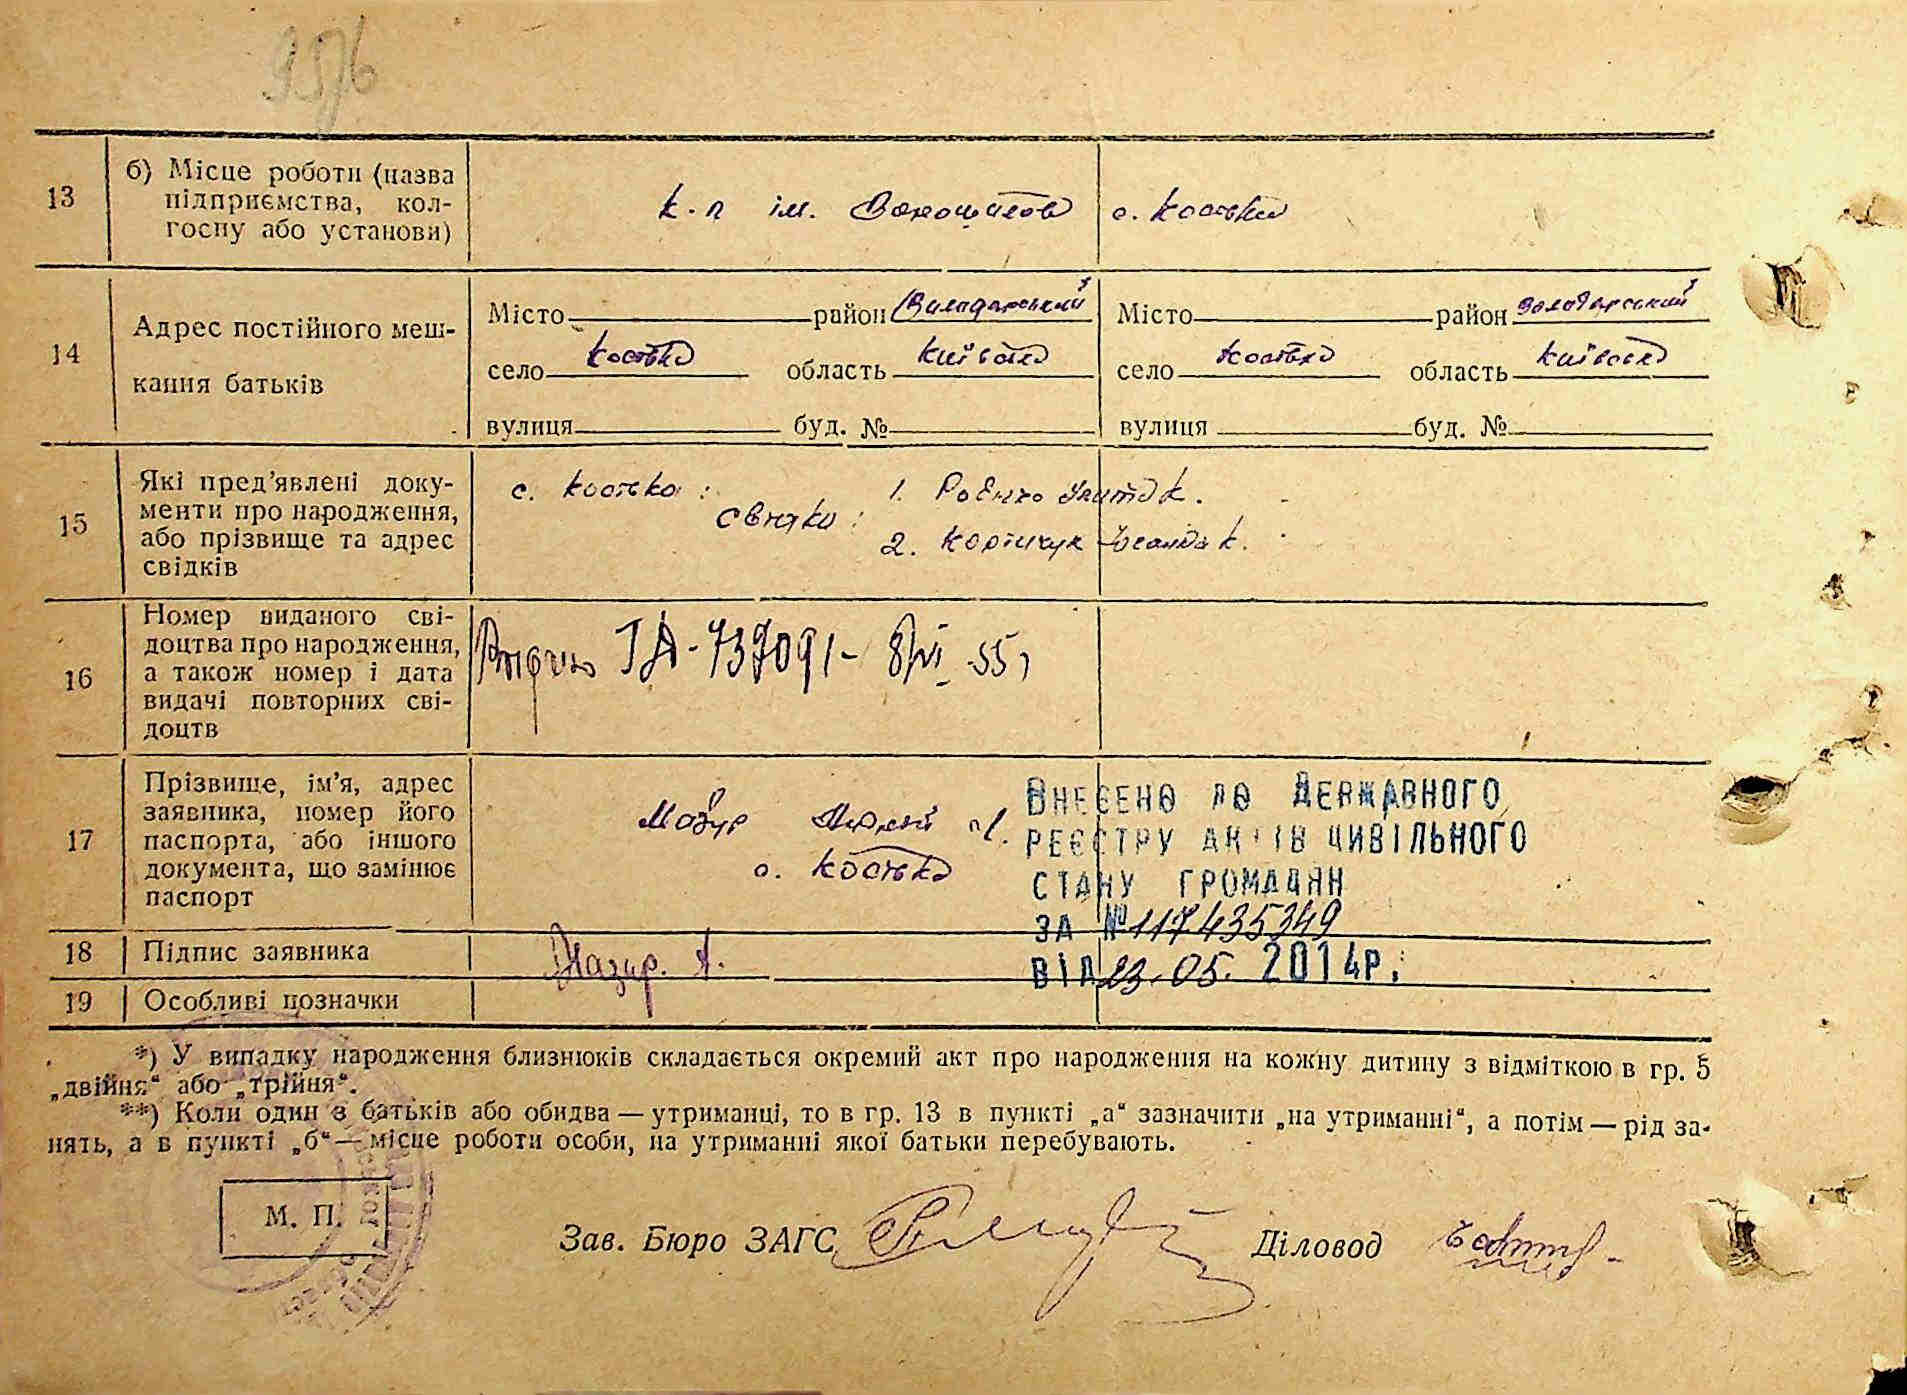 13
б) Місце роботи (назва
підприємства, кол-
госпу або установи)
к-п ім. Ворошилова с. Косівка
14
Адрес постійного меш-
кання батьків
Місто район Володарський Місто район Володарський
село Косівка область Київська село Косівка область Київська
вулиця буд. № вулиця буд. №
15
Які пред’явлені доку-
менти про народження,
або прізвище та адрес
свідків
с. Косівка:
Свідки: 1. К.
2. К.
16
Номер виданого сві-
доцтва про народження,
а також номер і дата
видачі повторних сві-
доцтв
55
17
Прізвище, ім’я, адрес
заявника, номер його
паспорта, або іншого
документа, що замінює
паспорт
Мазур
с. Косівка
ВНЕСЕНО ДО ДЕРЖАВНОГО
РЕЄСТРУ АКТІВ ЦИВІЛЬНОГО
СТАНУ ГРОМАДЯН
ЗА №117435349
ВІД 23.05. 2014р.
18 Підпис заявника Мазур. А.
19 Особливі позначки
*) У випадку народження близнюків складається окремий акт про народження на кожну дитину з відміткою в гр. 5
„двійня“ або „трійня“.
**) Коли один з батьків або обидва — утриманці, то в гр. 13 в пункті „а“ зазначити „на утриманні“, а потім — рід за-
нять, а в пункті „б“ — місце роботи особи, на утриманні якої батьки перебувають.
М. П.
Зав. Бюро ЗАГС Діловод